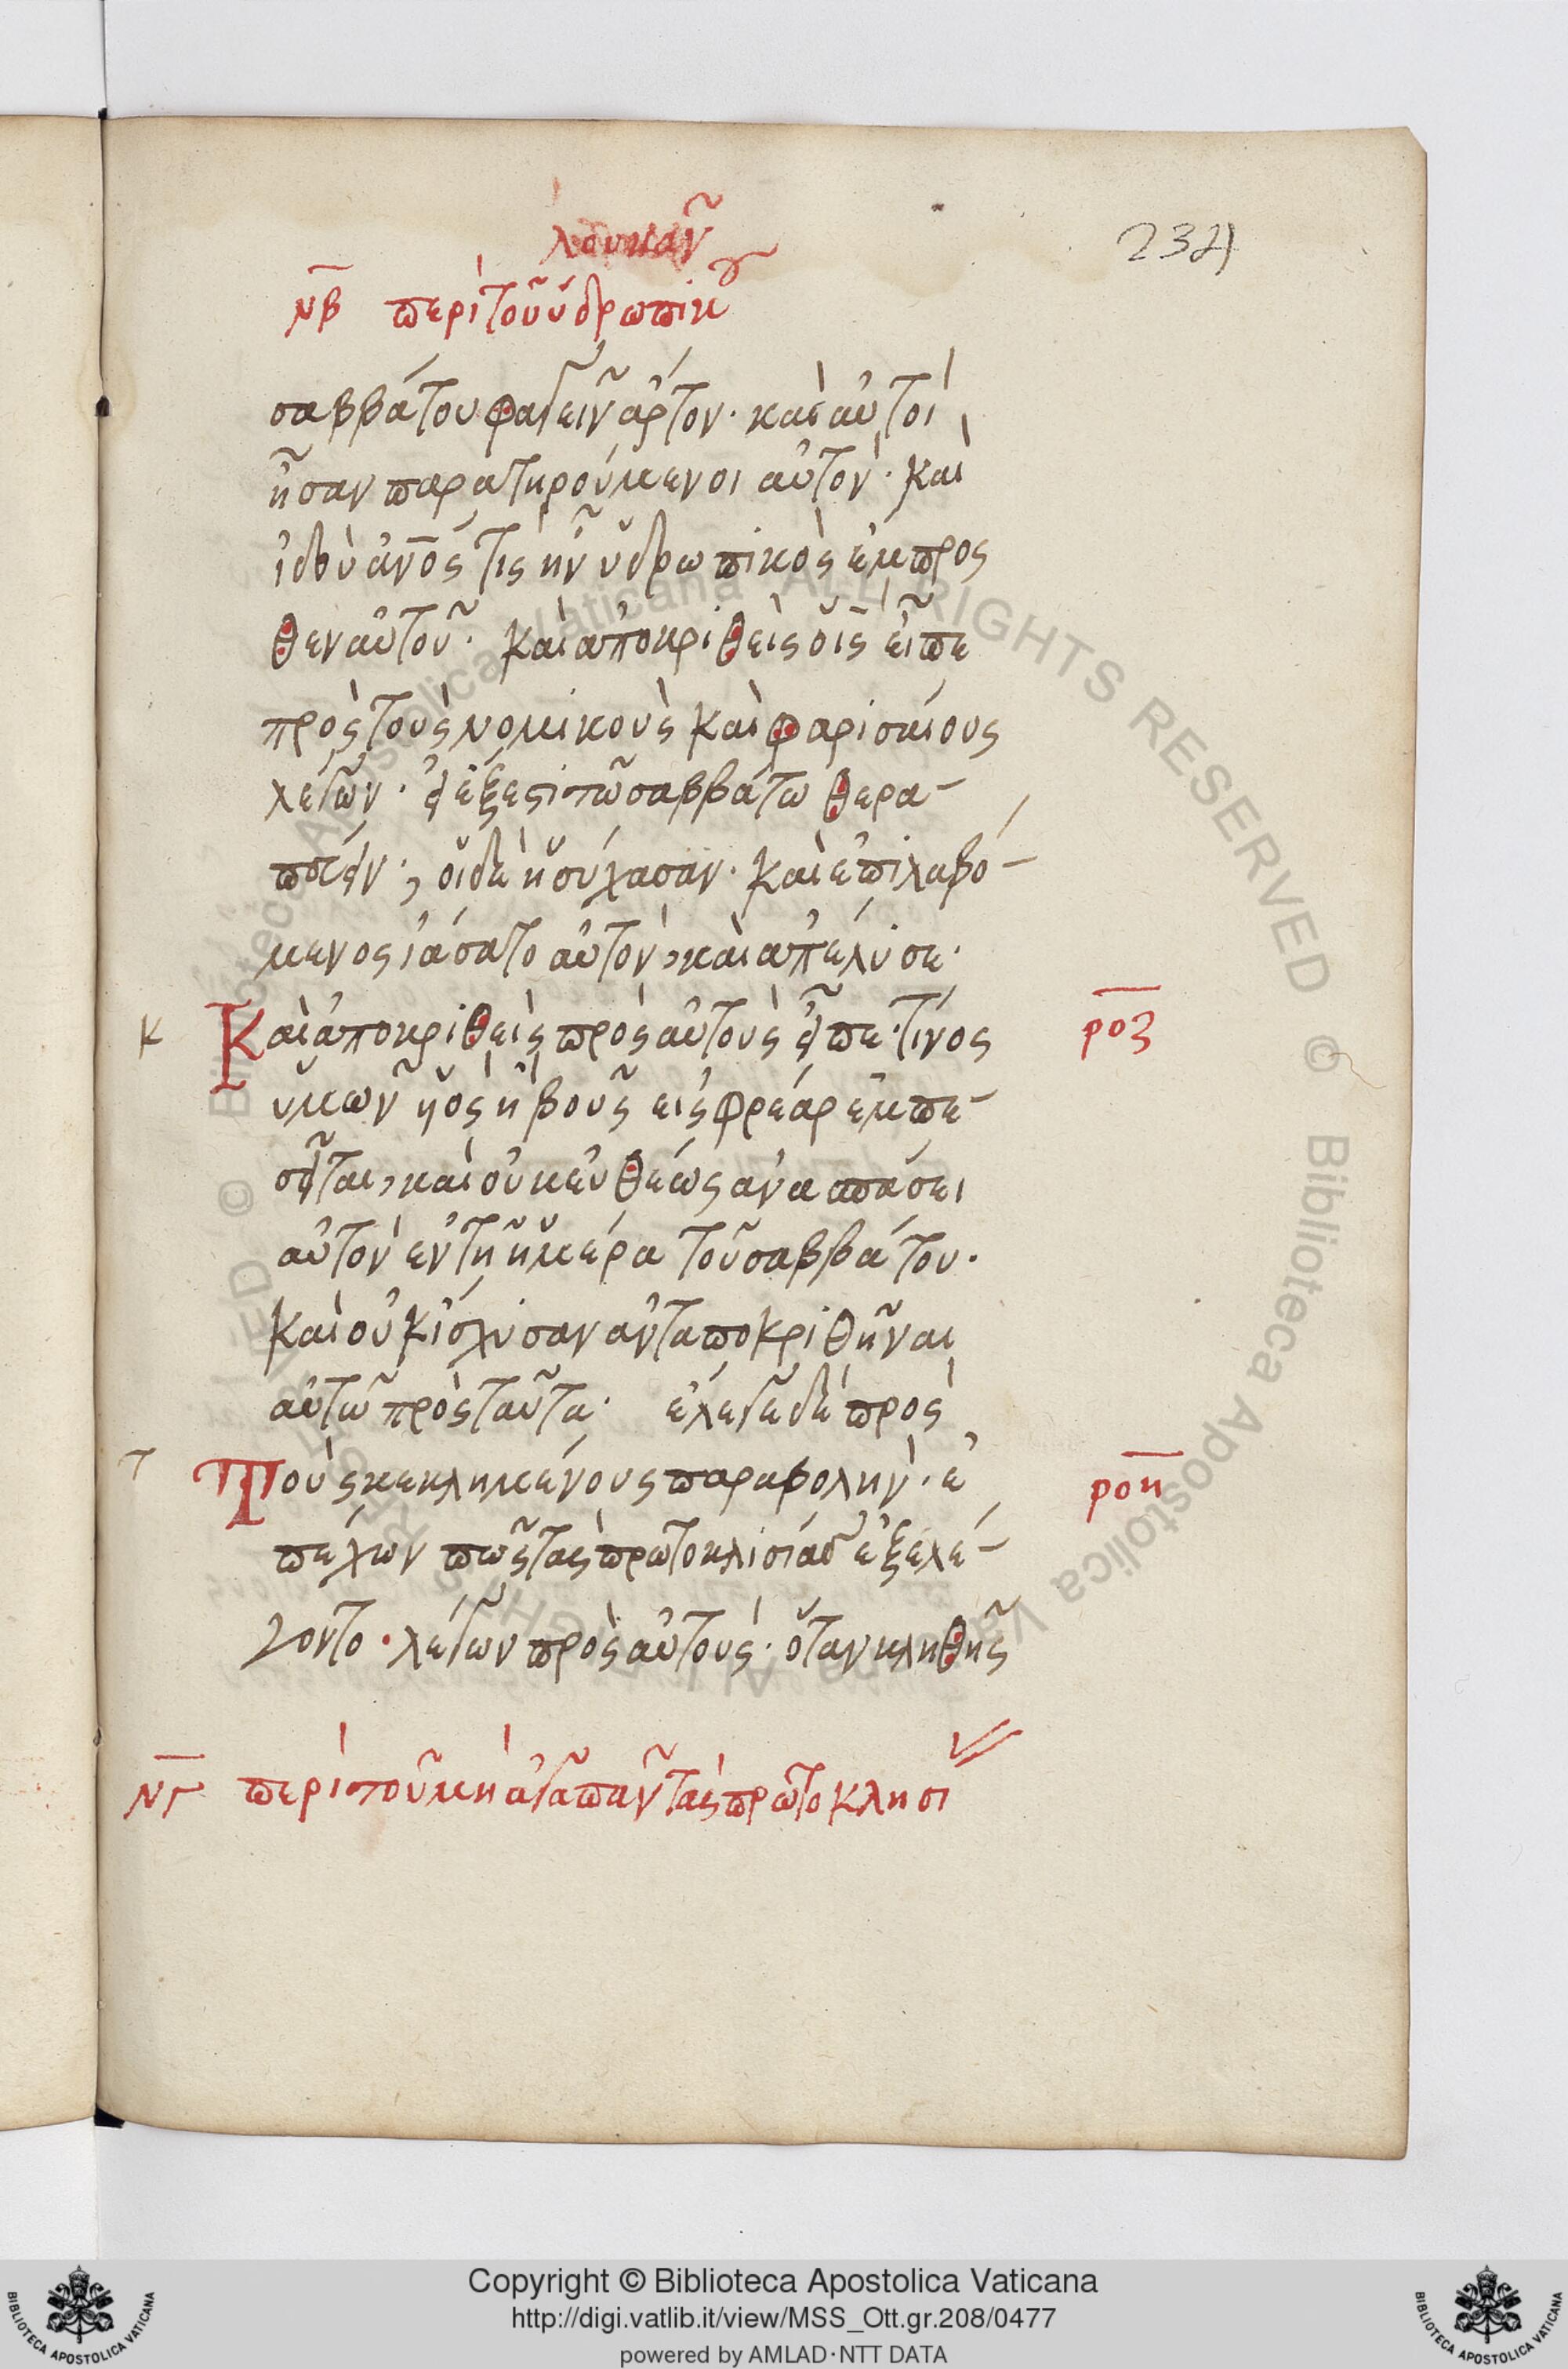 λουκᾶν
234
νβ περὶ τοῦ ὑδρωπικοῦ
σαββάτου φαγεῖν ἄρτον· καὶ αὐτοὶ
ἦσαν παρατηρούμενοι αὐτόν· καὶ
ἰδοὺ ἄνος τίς ἦν ὑδρωπικὸς ἔμπρος
θεν αὐτοῦ· καὶ ἀποκριθεὶς ὁ ις εἶπε
πρὸς τοὺς νομικοὺς καὶ φαρισαίους
λέγων· εἰ ἔξεστι τῶ σαββάτω θερα-
πεύειν; οἱ δὲ ἡσύχασαν· καὶ ἐπιλαβό-
μενος ἰάσατο αὐτόν, καὶ ἀπέλυσε·
κ Καὶ ἀποκριθεὶς πρὸς αὐτοὺς εἶπε· τίνος ροζ
ὑμῶν ὑὸς ἢ βοῦς εἰς φρέαρ ἐμπε-
σεῖται, καὶ οὐκ εὐθέως ἀνασπάσει
αὐτὸν ἐν τῆ ἡμέρα τοῦ σαββάτου·
καὶ οὐκ ἴσχυσαν ἀνταποκριθῆναι
αὐτῶ πρὸς ταῦτα· ἔλεγε δὲ πρὸς
τ Τοὺς κεκλημένους παραβολήν· ἐ ροη
πέχων πῶς τὰς πρωτοκλισίας ἐξελέ-
γοντο· λέγων πρὸς αὐτούς· ὅταν κληθῆς
νγ περὶ τοῦ μὴ ἀγαπᾶν τὰς πρωτοκλησί
Copyright © Biblioteca Apostolica Vaticana
http://digi.vatlib.it/view/MSS_Ott.gr.208/0477
powered by AMLAD·NTT DATA